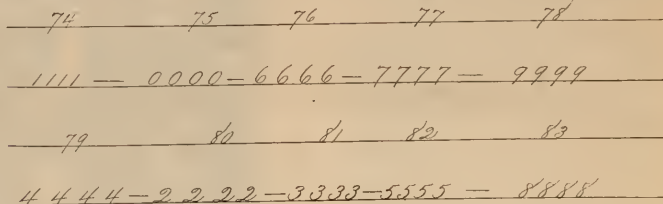 74 75 76 77 78
1111 — 0000 - 6666 - 7777 — 9999
79 80 81 82 83
4444 - 2222 - 3333 - 5555 — 8888